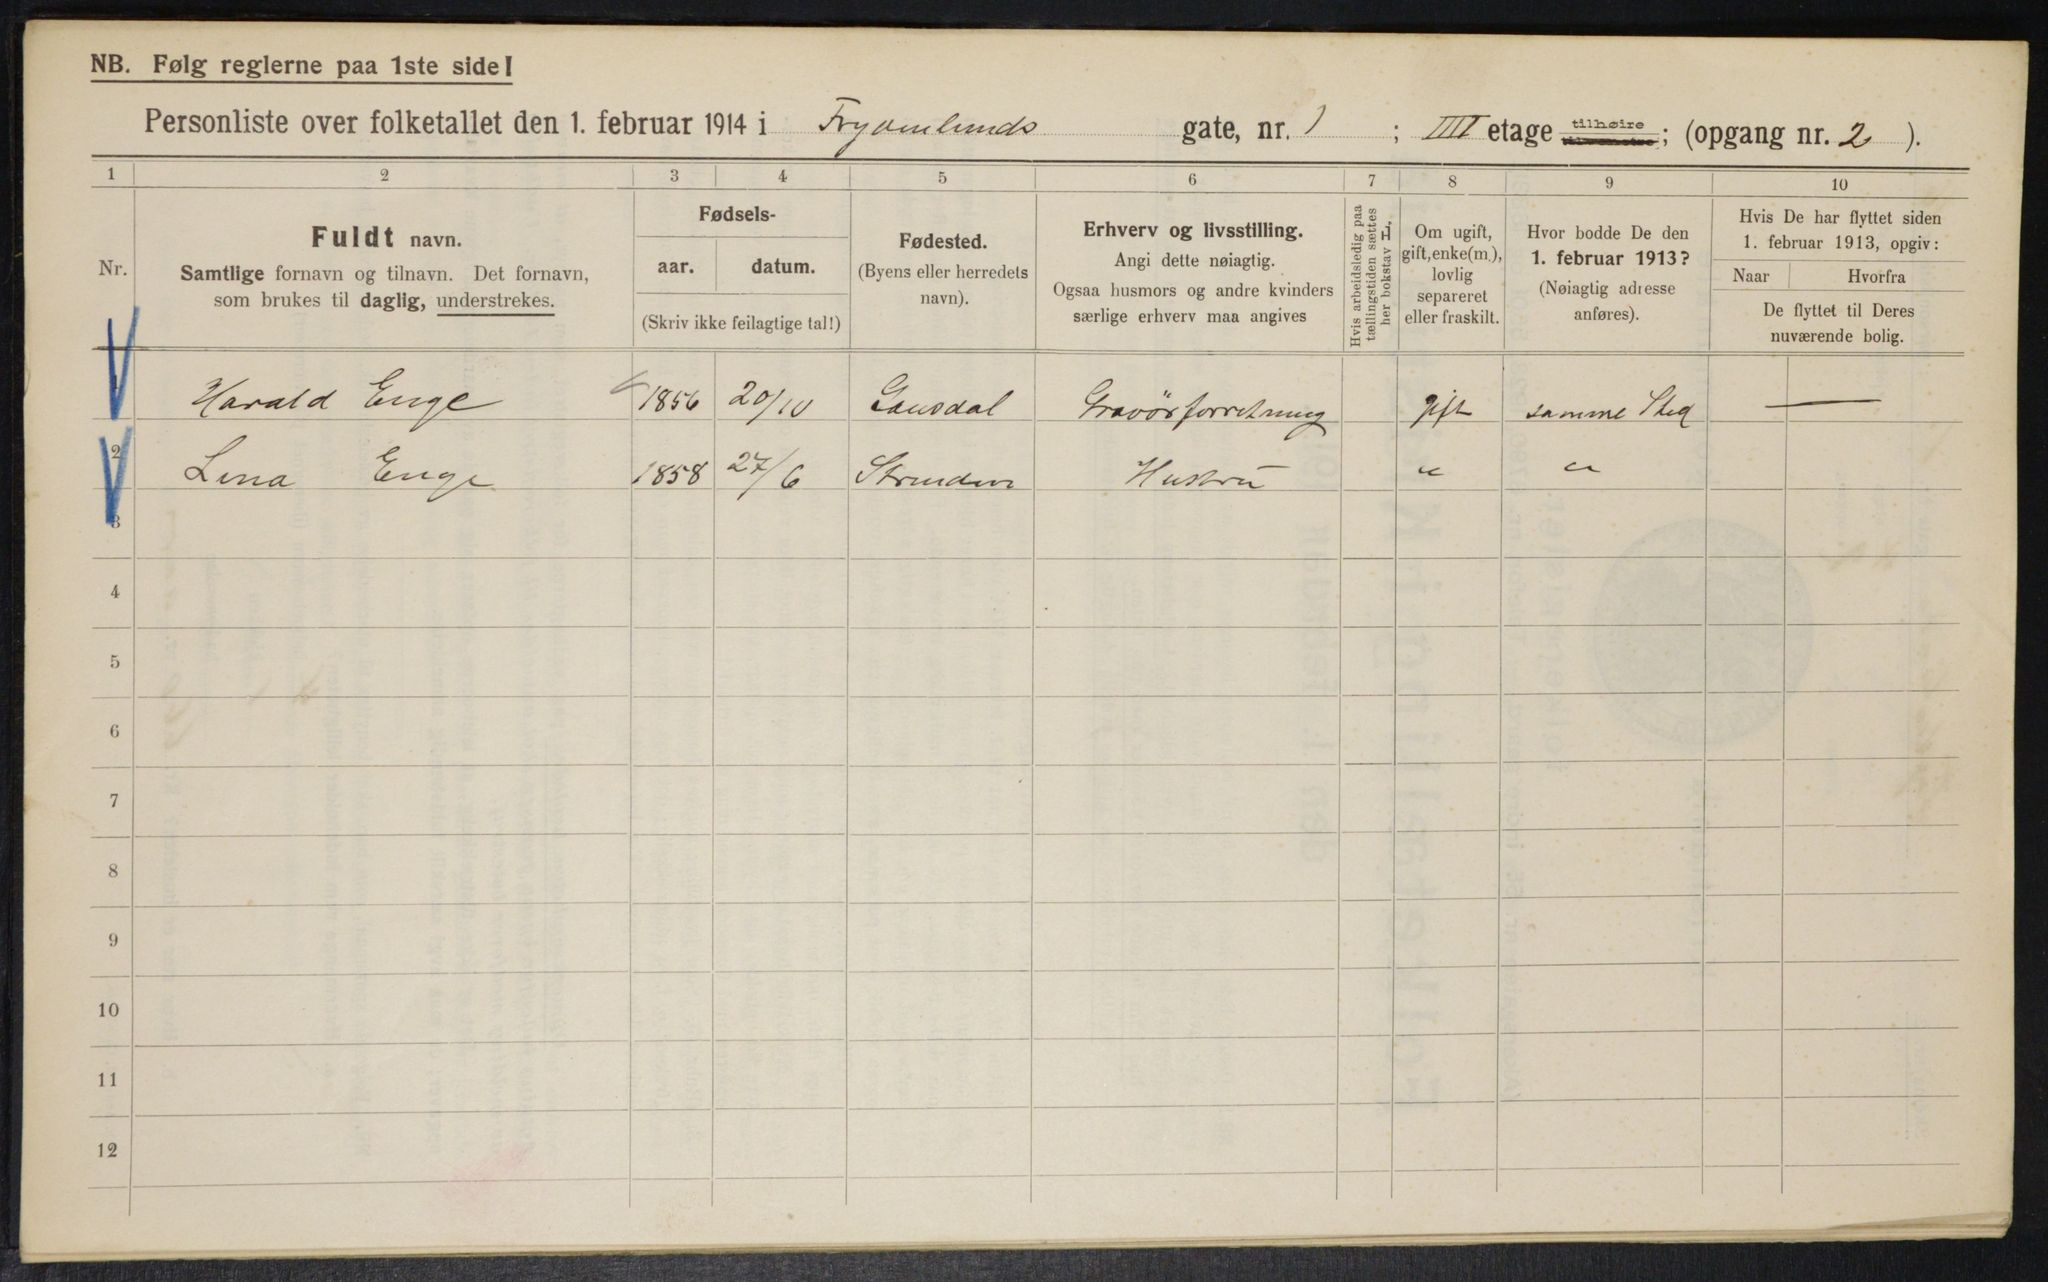 NB. Følg reglerne paa 1ste side!
Personliste over folketallet den 1. februar 1914 i Frydenlunds gate, nr. 1 ; IIII etage tilhøire; (opgang nr. 2 ).
1 2 3 4 5 6 7 8 9 10
Nr.
Fuldt navn.
Samtlige fornavn og tilnavn. Det fornavn,
som brukes til daglig, understrekes.
Fødsels-
aar. datum.
(Skriv ikke feilagtige tal!)
Fødested.
(Byens eller herredets
navn).
Erhverv og livsstilling.
Angi dette nøiagtig.
Ogsaa husmors og andre kvinders
særlige erhverv maa angives
Hvis arbeidsledig paa
tællingstiden sættes
her bokstav L.
Om ugift,
gift, enke(m.),
lovlig
separeret
eller fraskilt.
Hvor bodde De den
1. februar 1913?
(Nøiagtig adresse
anføres).
Hvis De har flyttet siden
1. februar 1913, opgiv:
Naar Hvorfra
De flyttet til Deres
nuværende bolig.
1 Harald Enge 1856 20/10 Gausdal Gravörforretning gift samme Sted —
2 Lina Enge 1858 27/6 Strinden Hustru " "
3
4
5
6
7
8
9
10
11
12